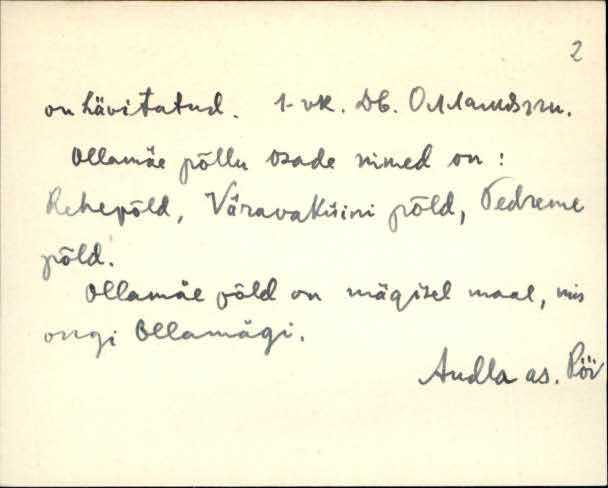 2
on hävitatud. 1-vk. Db.
Ollamäe põllu osade nimed on:
Rehepõld, Väravaküini põld, Pedreme
põld.
Ollamäe põld on mägisel maal, mis
ongi Ollamägi.
Audla as. Pöi